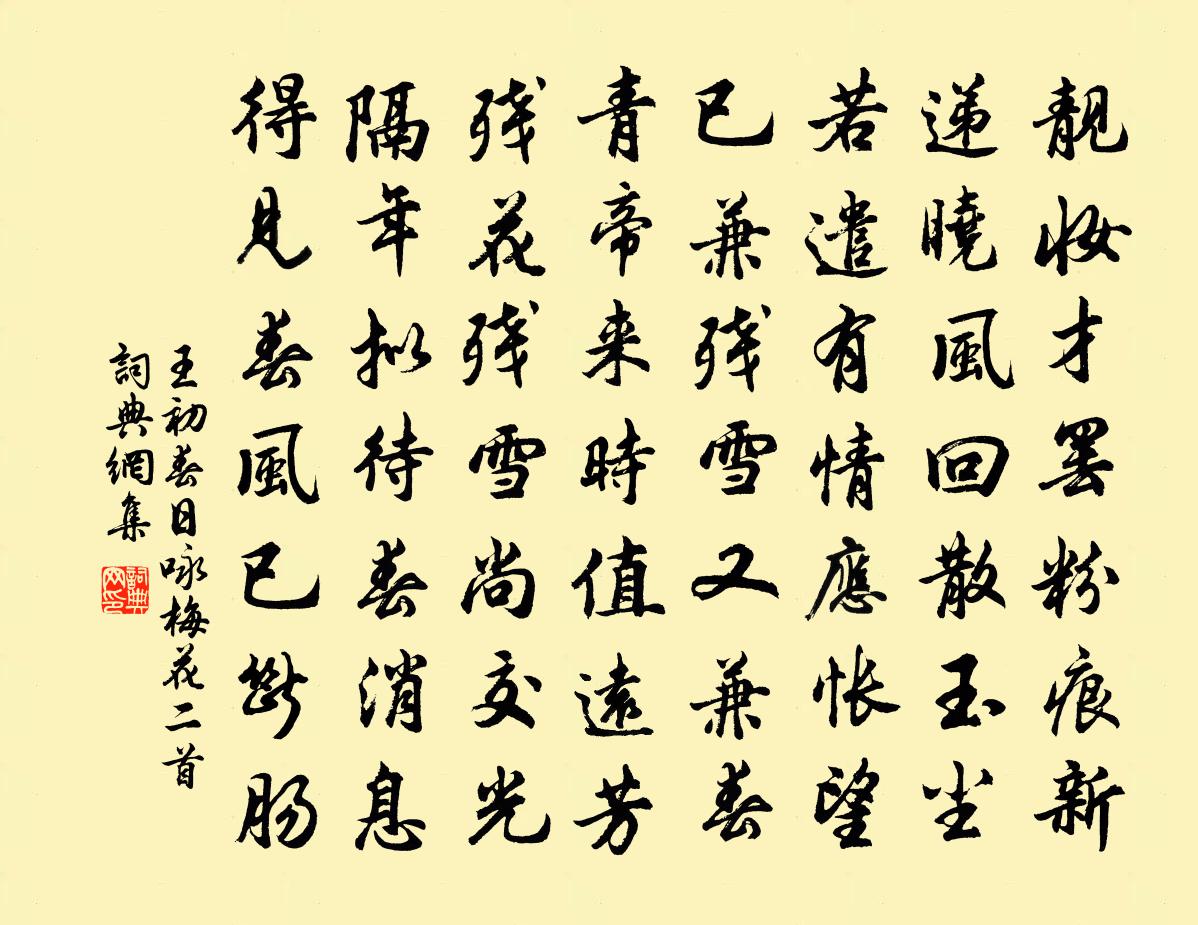 靚妝才罷粉痕新
递曉風回散玉尘
若遣有情應怅望
已兼残雪又兼春
青帝来時值遠芳
残花残雪尚交光
隔年拟待春消息
得見春風已斷肠
王初春日咏梅花二首
詞典網集
詞典網印